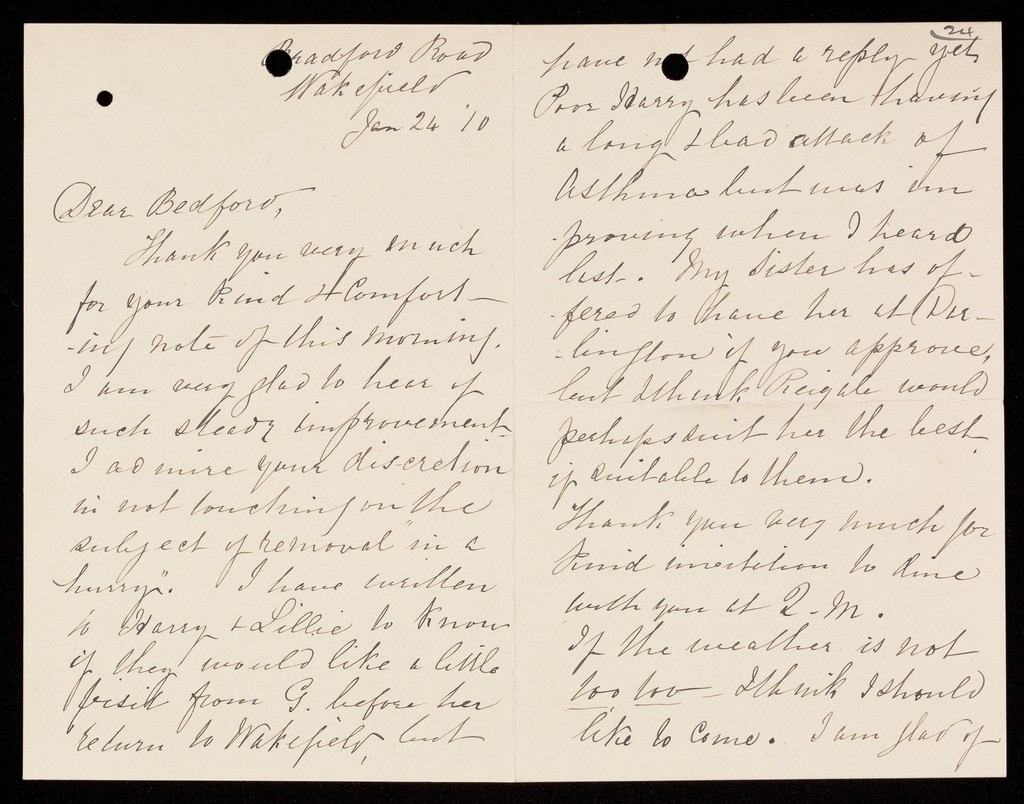 Bradford Road
Wakefield
Jan 24 '10
Dear Bedford,
Thank you very much
for your kind & Comfort-
-ing note of this morning.
I am very glad to hear of
such steady improvement-
I admire your discretion
in not touching on the
subject of removal "in a
hurry". I have written
to Harry & Lillie to know
if they would like a little
visit from G. before her
return to Wakefield, but
24
have not had a reply yet,
Poor Harry has been having
a long & bad attack of
Asthma but was im
-proving when I heard
last. My Sister has of-
-fered to have her at Dar-
-lington if you approve,
but I think Reigate would
perhaps suit her the best
if suitable to them.
Thank you very much for
kind invitation to dine
with you at Q-M.
If the weather is not
too too - I think I should
like to come. I am glad of